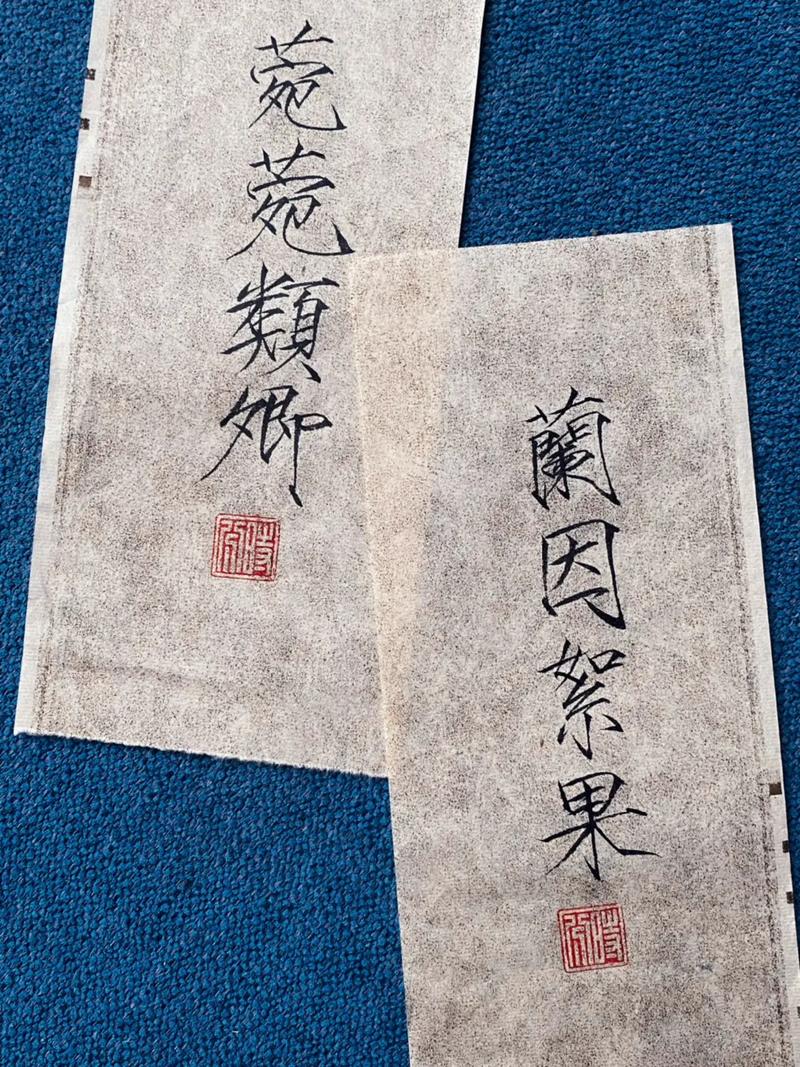 菀菀類卿
蘭因絮果